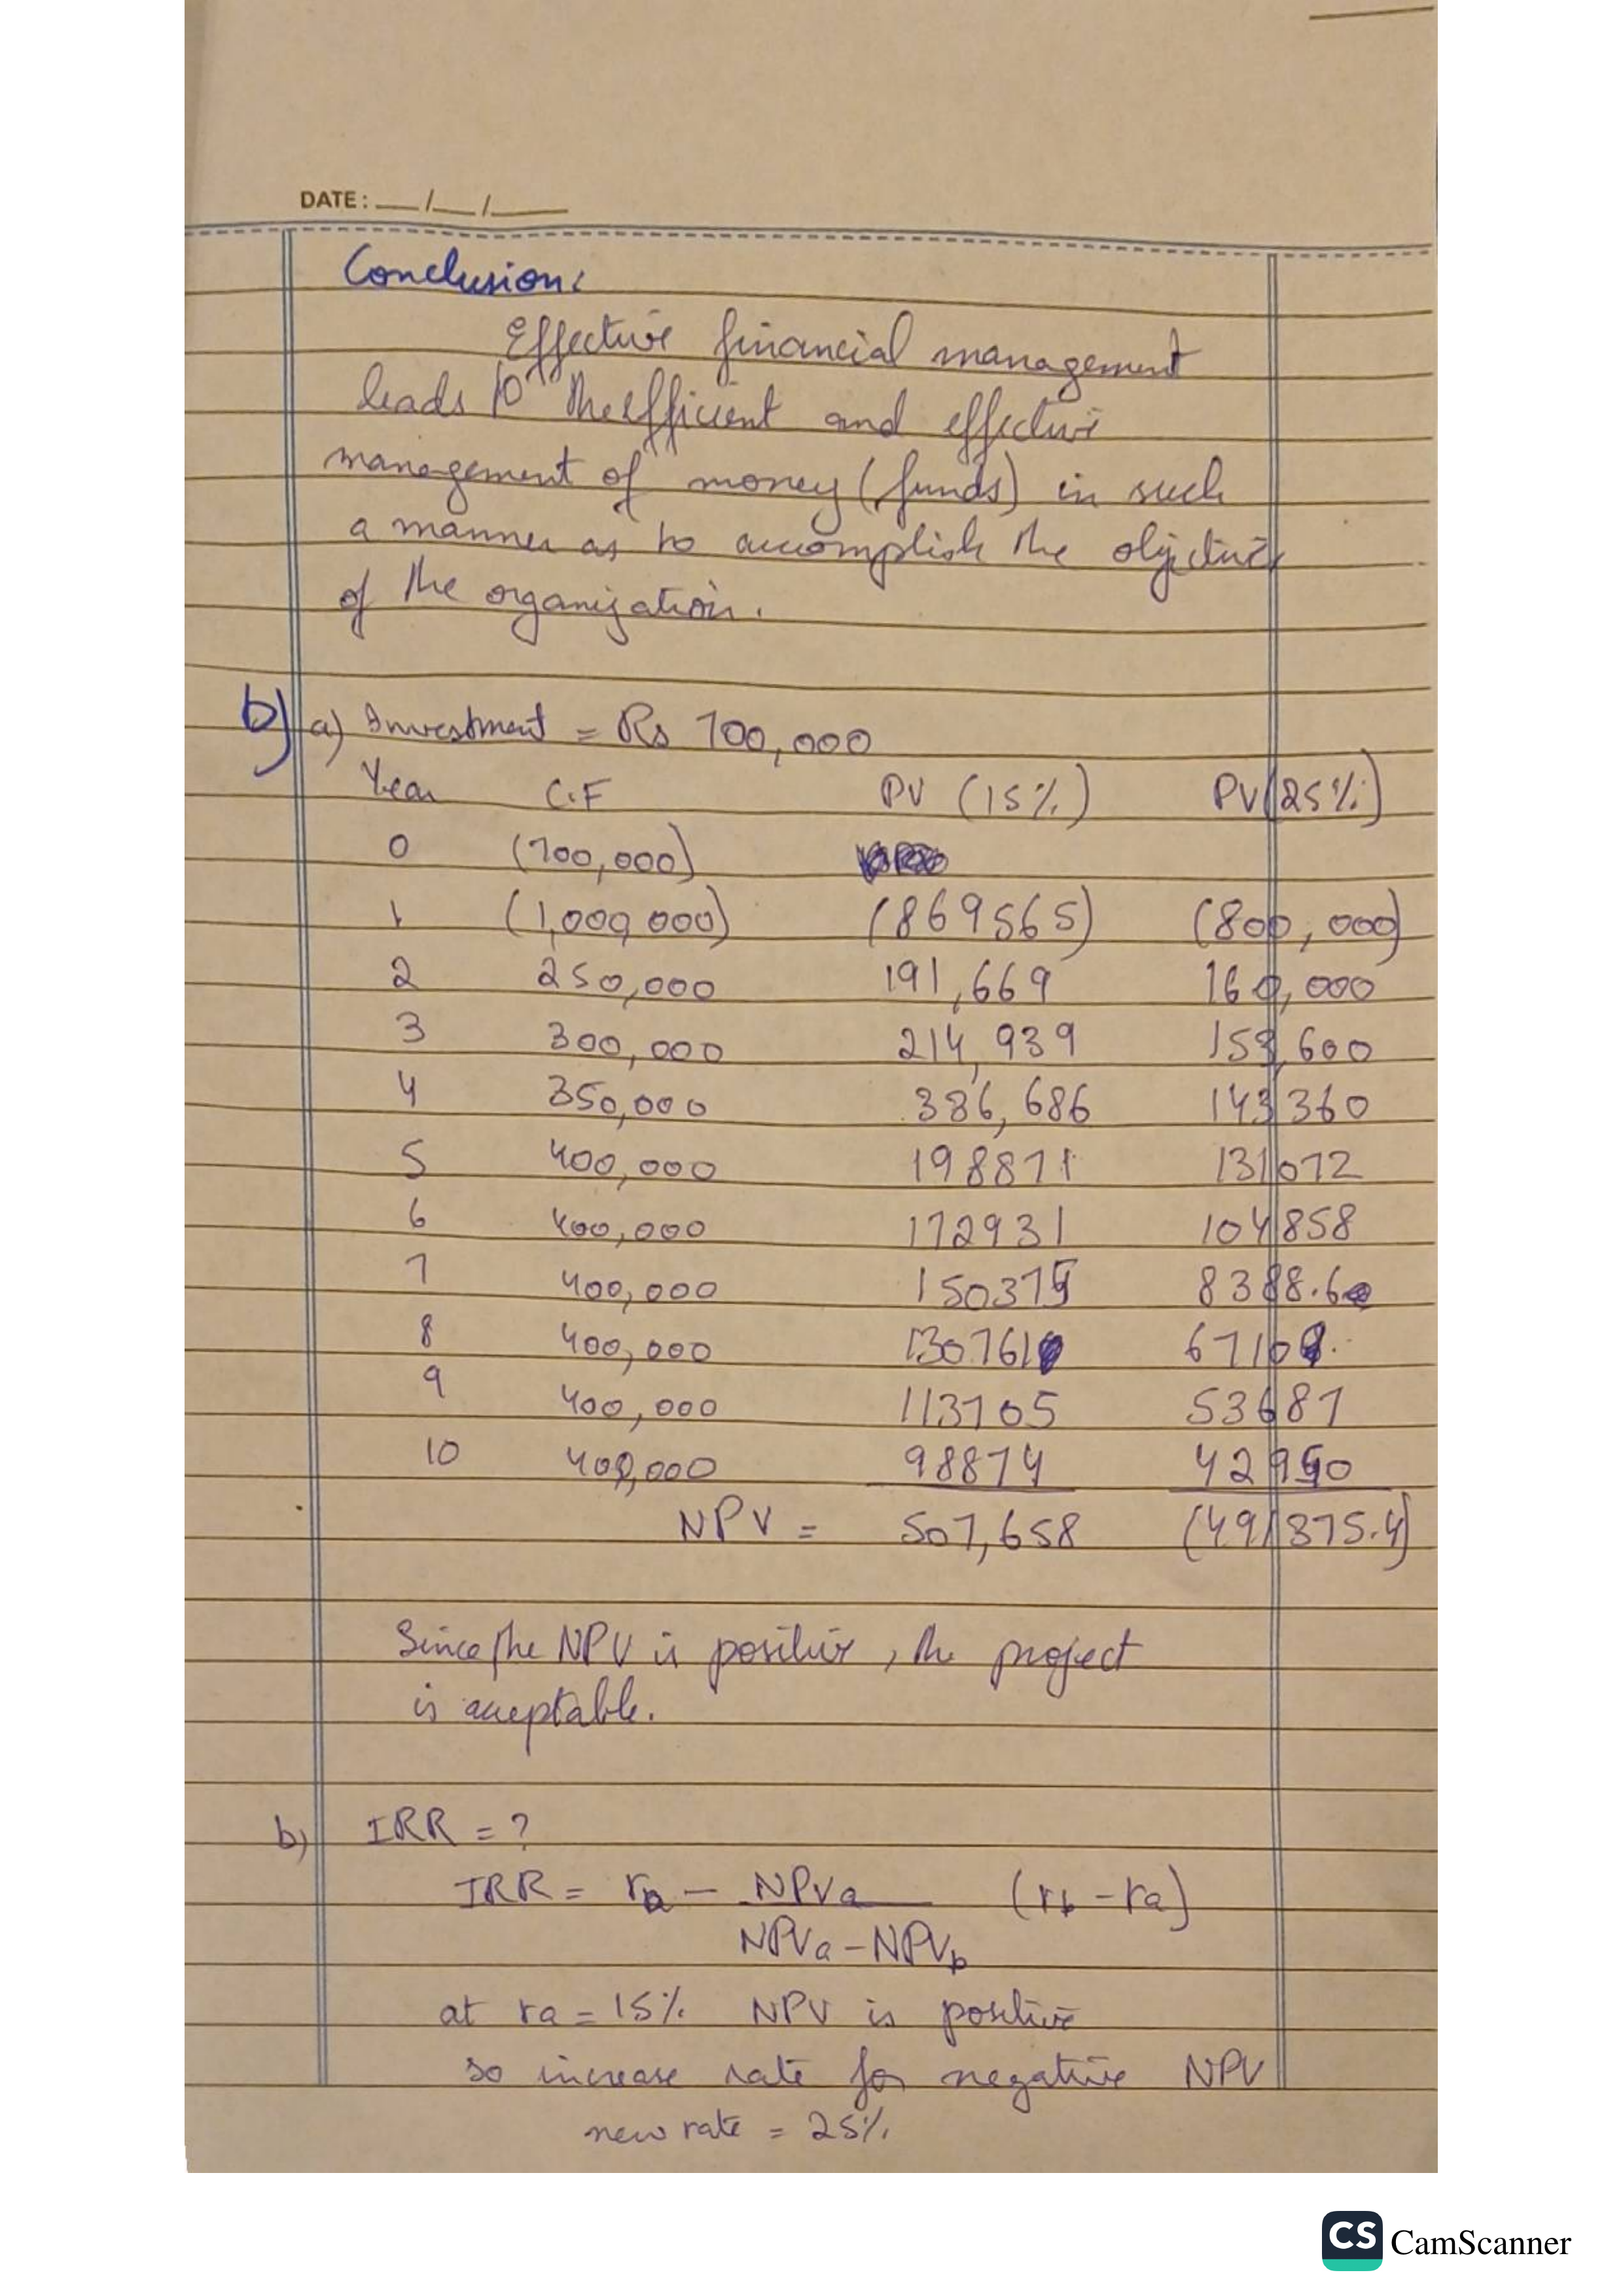 DATE: __/__/____
Conclusion:
Effective financial management
leads to the efficient and effective
management of money (funds) in such
a manner as to accomplish the objectives
of the organization.
b) a) Investment = Rs 700,000
Year C.F PV (15%) PV (25%)
0 (700,000)
1 (1,000,000) (869565) (800,000)
2 250,000 191,669 160,000
3 300,000 214,939 153,600
4 350,000 386,686 143360
5 400,000 198871 131072
6 400,000 172931 104858
7 400,000 150375 8388.6
8 400,000 130761 6710
9 400,000 113705 53687
10 400,000 98874 42950
NPV = 507,658 (491375.4)
Since the NPV is positive, the project
is aceptable.
b) IRR = ?
IRR = ra - NPVa (rb - ra)
NPVa - NPVb
at ra = 15% NPV is positive
so increase rate for negative NPV
new rate = 25%
CS CamScanner